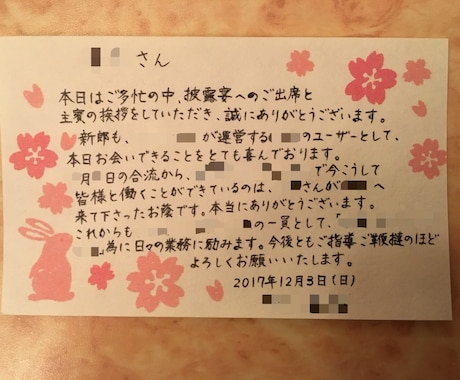 さん
本日はご多忙の中、披露宴へのご出席と
主賓の挨拶をしていただき、誠にありがとうございます。
新郎も、 が運営する のユーザーとして、
本日お会いできることをとても喜んでおります。
月 日の合流から、 で今こうして
皆様と働くことができているのは、 さんが へ
来て下さったお陰です。本当にありがとうございます。
これからも の一員として、「
」為に日々の業務に励みます。今後ともご指導ご鞭撻のほど
よろしくお願いいたします。
2017年12月3日(日)